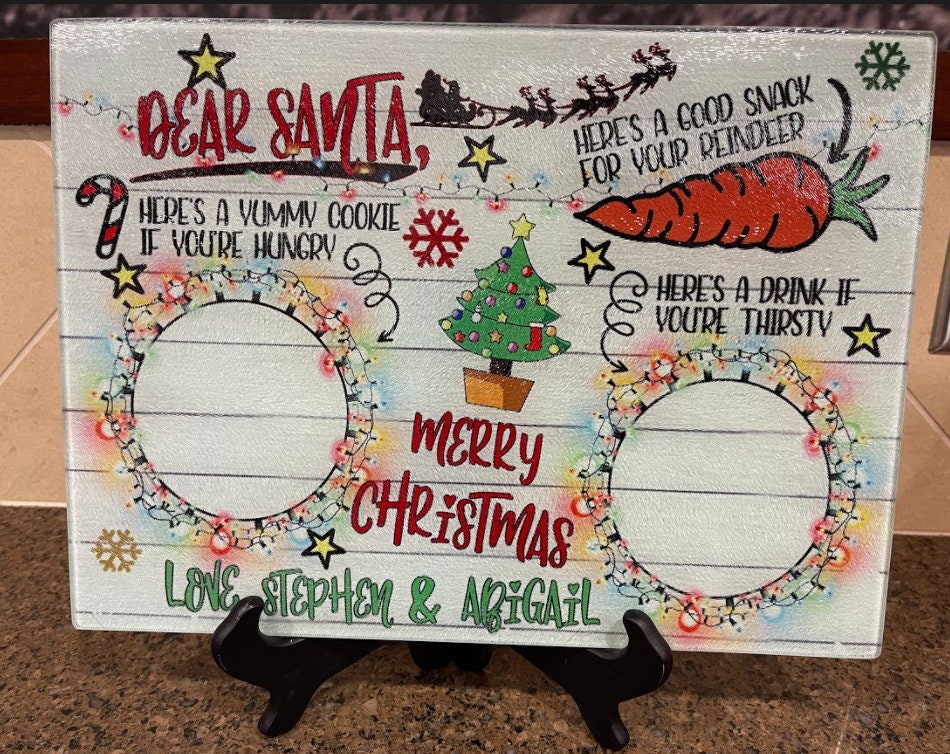 DEAR SANTA,
HERE'S A GOOD SNACK
FOR YOUR REINDEER
HERE'S A YUMMY COOKIE
IF YOU'RE HUNGRY
HERE'S A DRINK IF
YOU'RE THIRSTY
MERRY
CHRiSTMAS
LOVE, STEPHEN & ABiGAiL